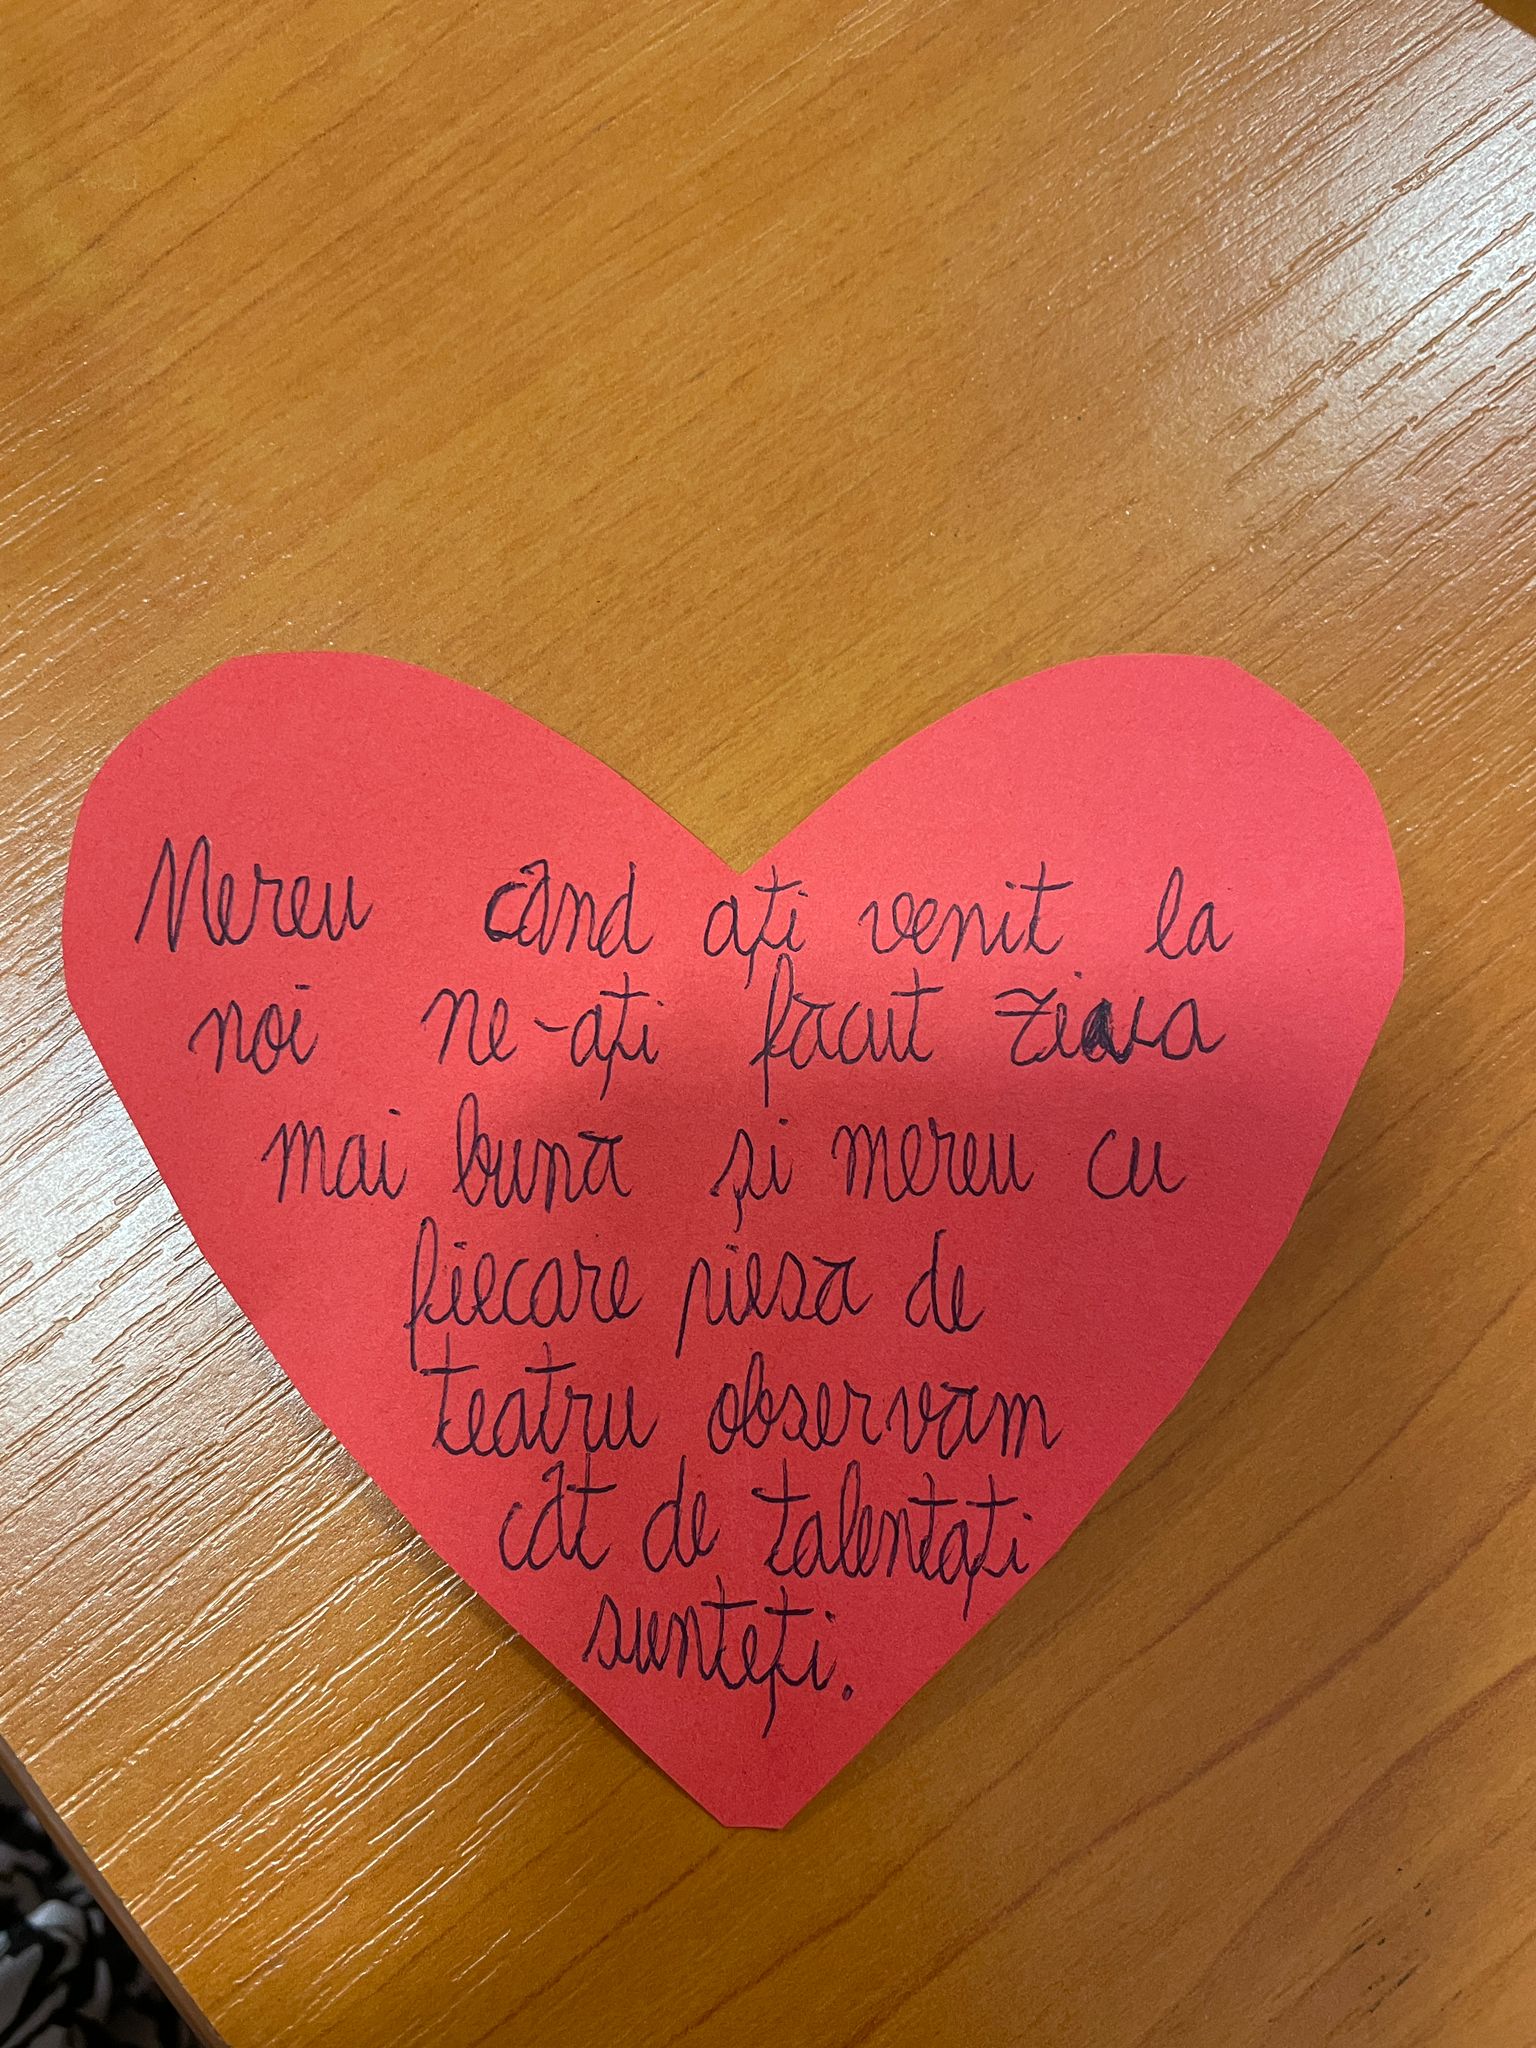 Mereu când ați venit la
noi ne-ați făcut ziua
mai bună și mereu cu
fiecare piesă de
teatru observăm
cât de talentați
sunteți.